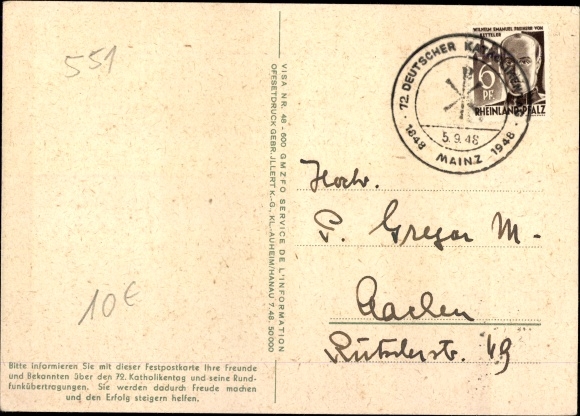 551
10€
Bitte informieren Sie mit dieser Festpostkarte Ihre Freunde
und Bekannten über den 72. Katholikentag und seine Rund-
funkübertragungen. Sie werden dadurch Freude machen
und den Erfolg steigern helfen.
VISA NR. 48 - 600 GMZFO SERVICE DE L'INFORMATION
OFFSETDRUCK GEBR. ILLERT K.-G., KL. AUHEIM/HANAU 7.48. 50000
72. DEUTSCHER
5.9.48
1848 MAINZ 1948
WILHELM EMANUEL FREIHERR VON
KETTELER
6
PF.
RHEINLAND-PFALZ
Hochw.
P. Gregor M.
Aachen
49